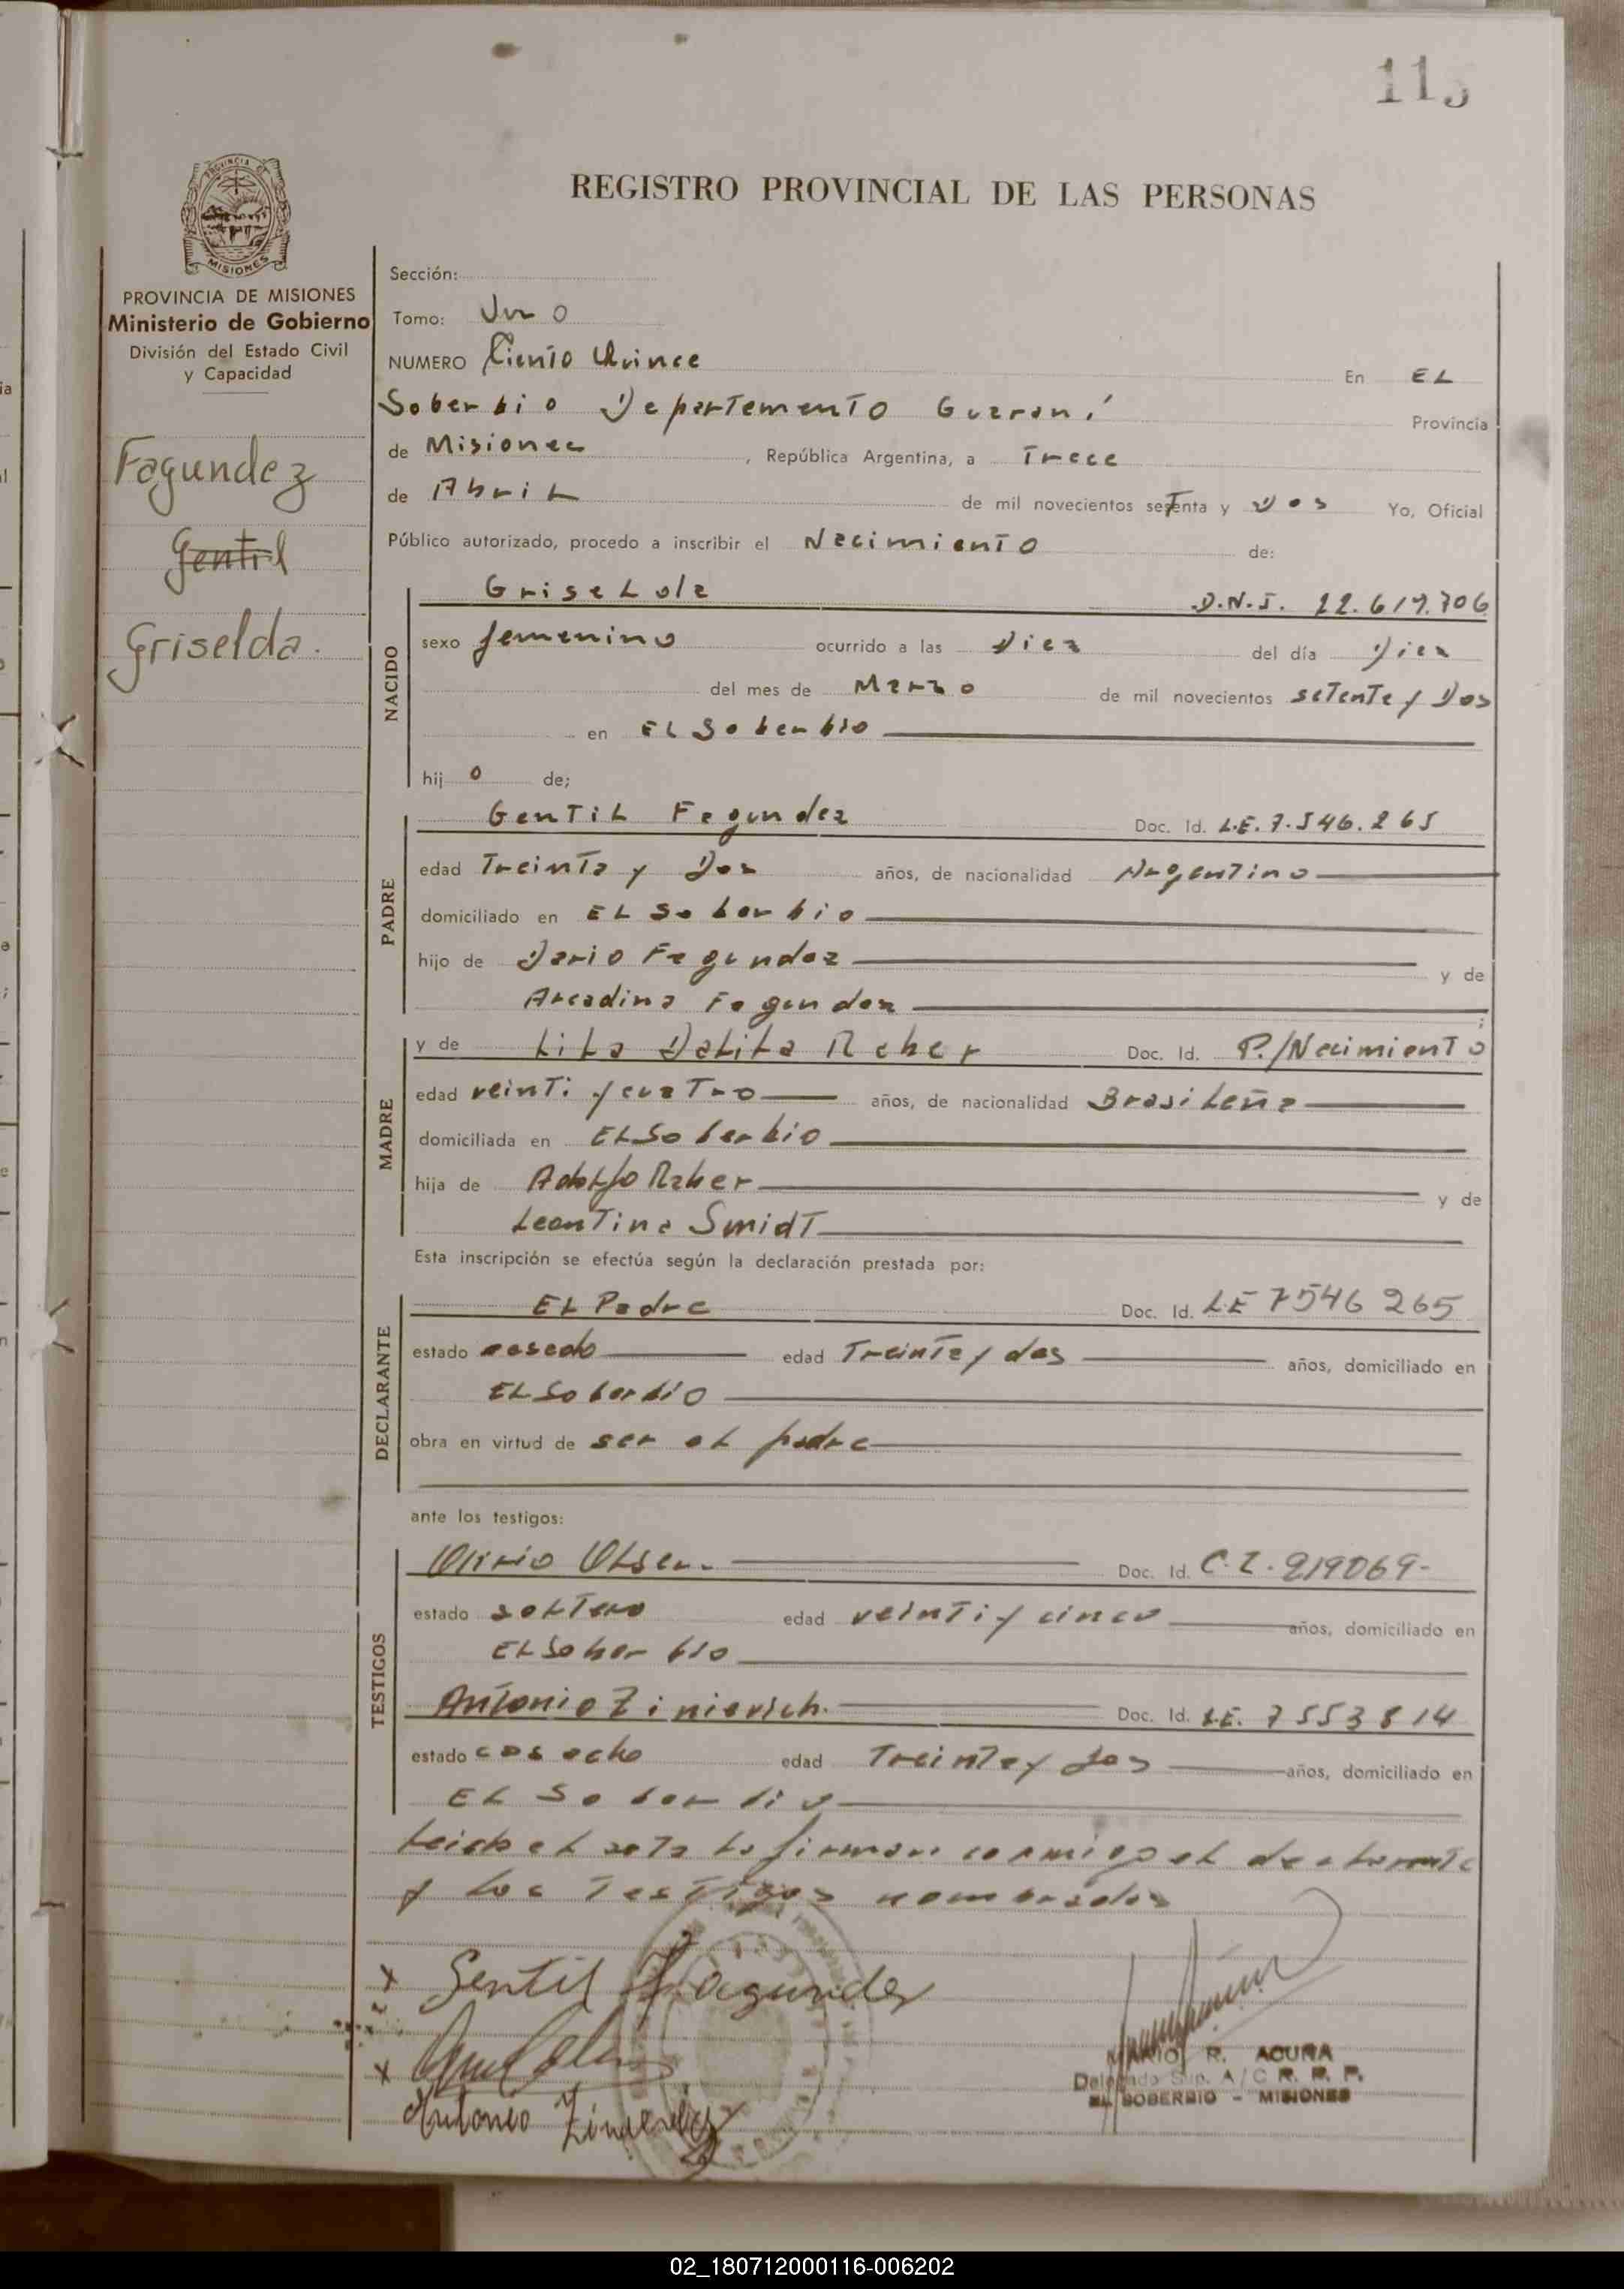 115
REGISTRO PROVINCIAL DE LAS PERSONAS
PROVINCIA DE
MISIONES
PROVINCIA DE MISIONES
Ministerio de Gobierno
División del Estado Civil
y Capacidad
Fagundez
Gentil
Griselda.
Sección:
Tomo: Uno
NUMERO Ciento Quince En EL
Soberbio Departamento Guaraní Provincia
de Misiones, República Argentina, a Trece
de Abril de mil novecientos setenta y Dos Yo, Oficial
Público autorizado, procedo a inscribir el Nacimiento de:
NACIDO
Griselda D.N.I. 22.619.706
sexo femenino ocurrido a las Diez del día Diez
del mes de Marzo de mil novecientos setenta y Dos
en EL Soberbio
hij o de;
PADRE
GenTiL Fagundez Doc. Id. L.E. 7.546.265
edad Treinta y Dos años, de nacionalidad Argentino
domiciliado en EL Soberbio
hijo de Dario Fagundez y de
Arcadina Fagundez
MADRE
y de LiLa DaLiLa Raber Doc. Id. P./Nacimiento
edad veinti y cuatro años, de nacionalidad BrasiLeña
domiciliada en EL Soberbio
hija de Adolfo Raber y de
LeonTina SmidT
Esta inscripción se efectúa según la declaración prestada por:
DECLARANTE
EL Padre Doc. Id. LE 7546265
estado casado edad Treinta y dos años, domiciliado en
EL Soberbio
obra en virtud de ser eL padre
ante los testigos:
TESTIGOS
Olirio OLsen. Doc. Id. C.I. 919069-
estado soLTero edad veinti y cinco años, domiciliado en
EL Soberbio
Antonio Zinievich. Doc. Id. LE. 7553814
estado casado edad Treinta y dos años, domiciliado en
EL Soberbio
Leida eL acta La firman conmigo eL decLarante
y Los Testigos nombrados
x Gentil Fagundez
x
Antonio
MARIO R. ACUÑA
Delegado Sup. A/C R. P. P.
EL SOBERBIO - MISIONES
02_180712000116-006202